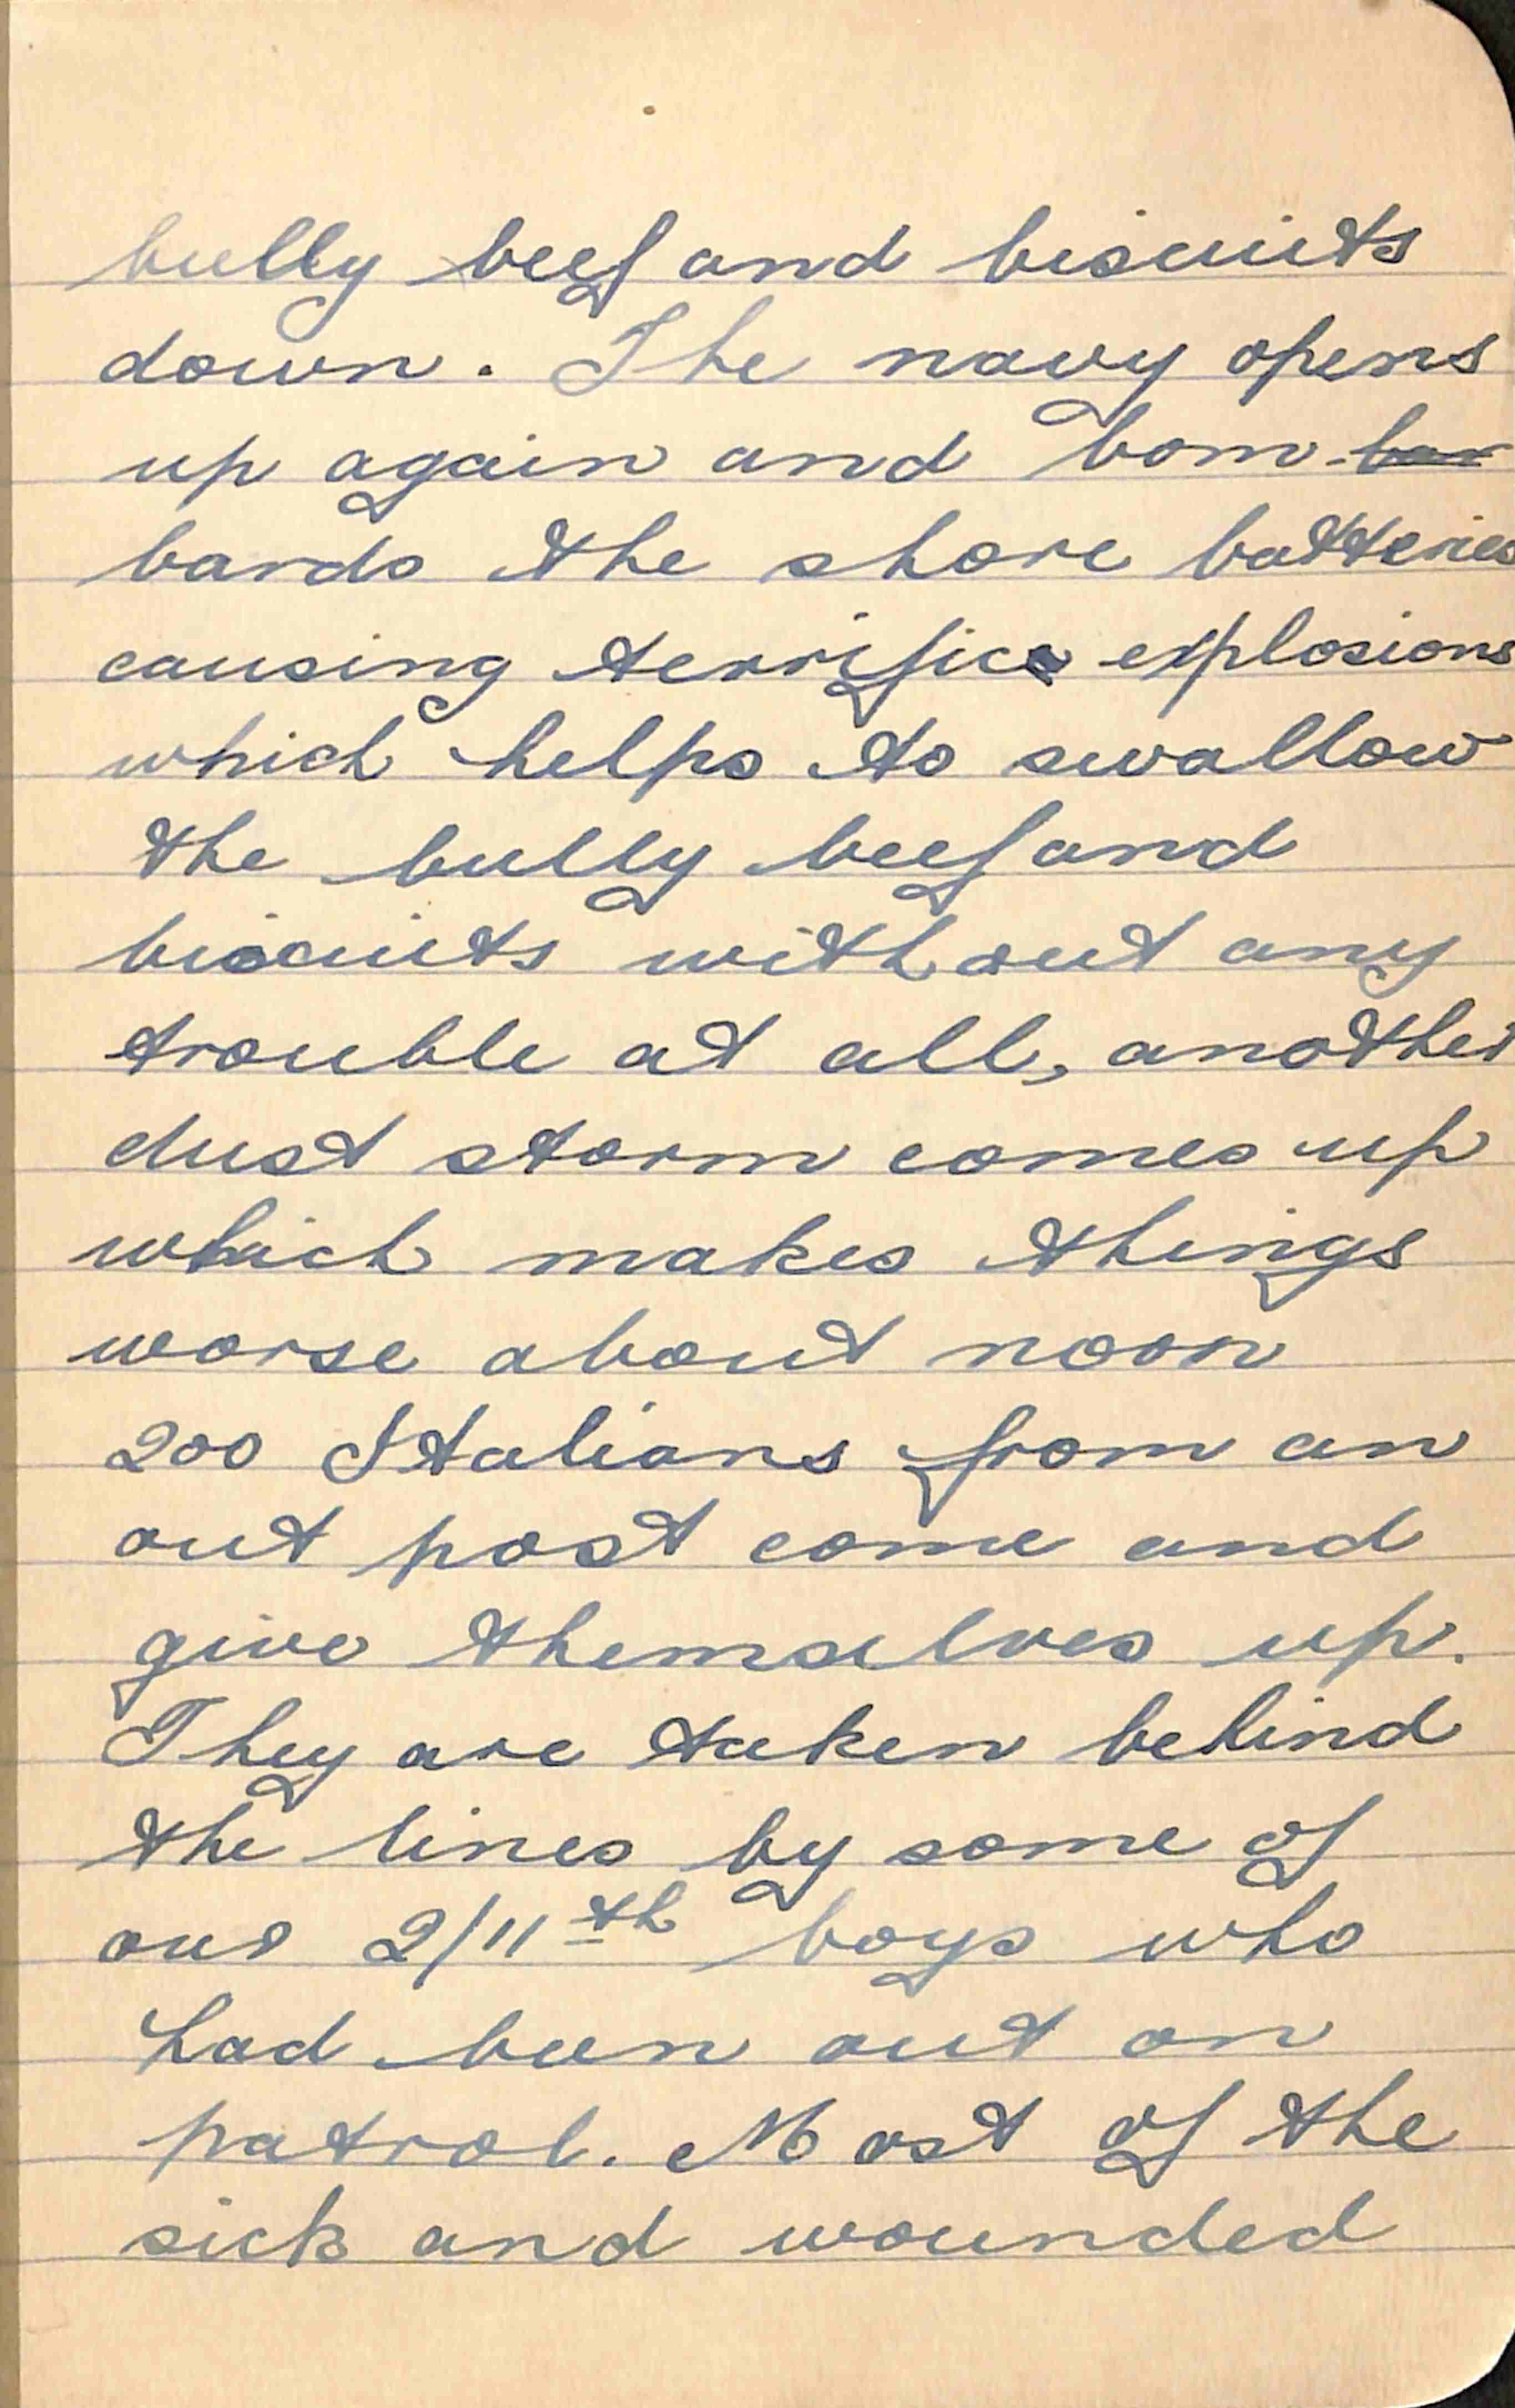 bully beef and biscuits
down. The navy opens
up again and bom-bar
bards the shore batteries
causing terrific explosions
which helps to swallow
the bully beef and
biscuits without any
trouble at all, another
dust storm comes up
which makes things
worse about noon
200 Italians from an
out post come and
give themselves up.
They are taken behind
the lines by some of
our 2/11th boys who
had been out on
patrol. Most of the
sick and wounded